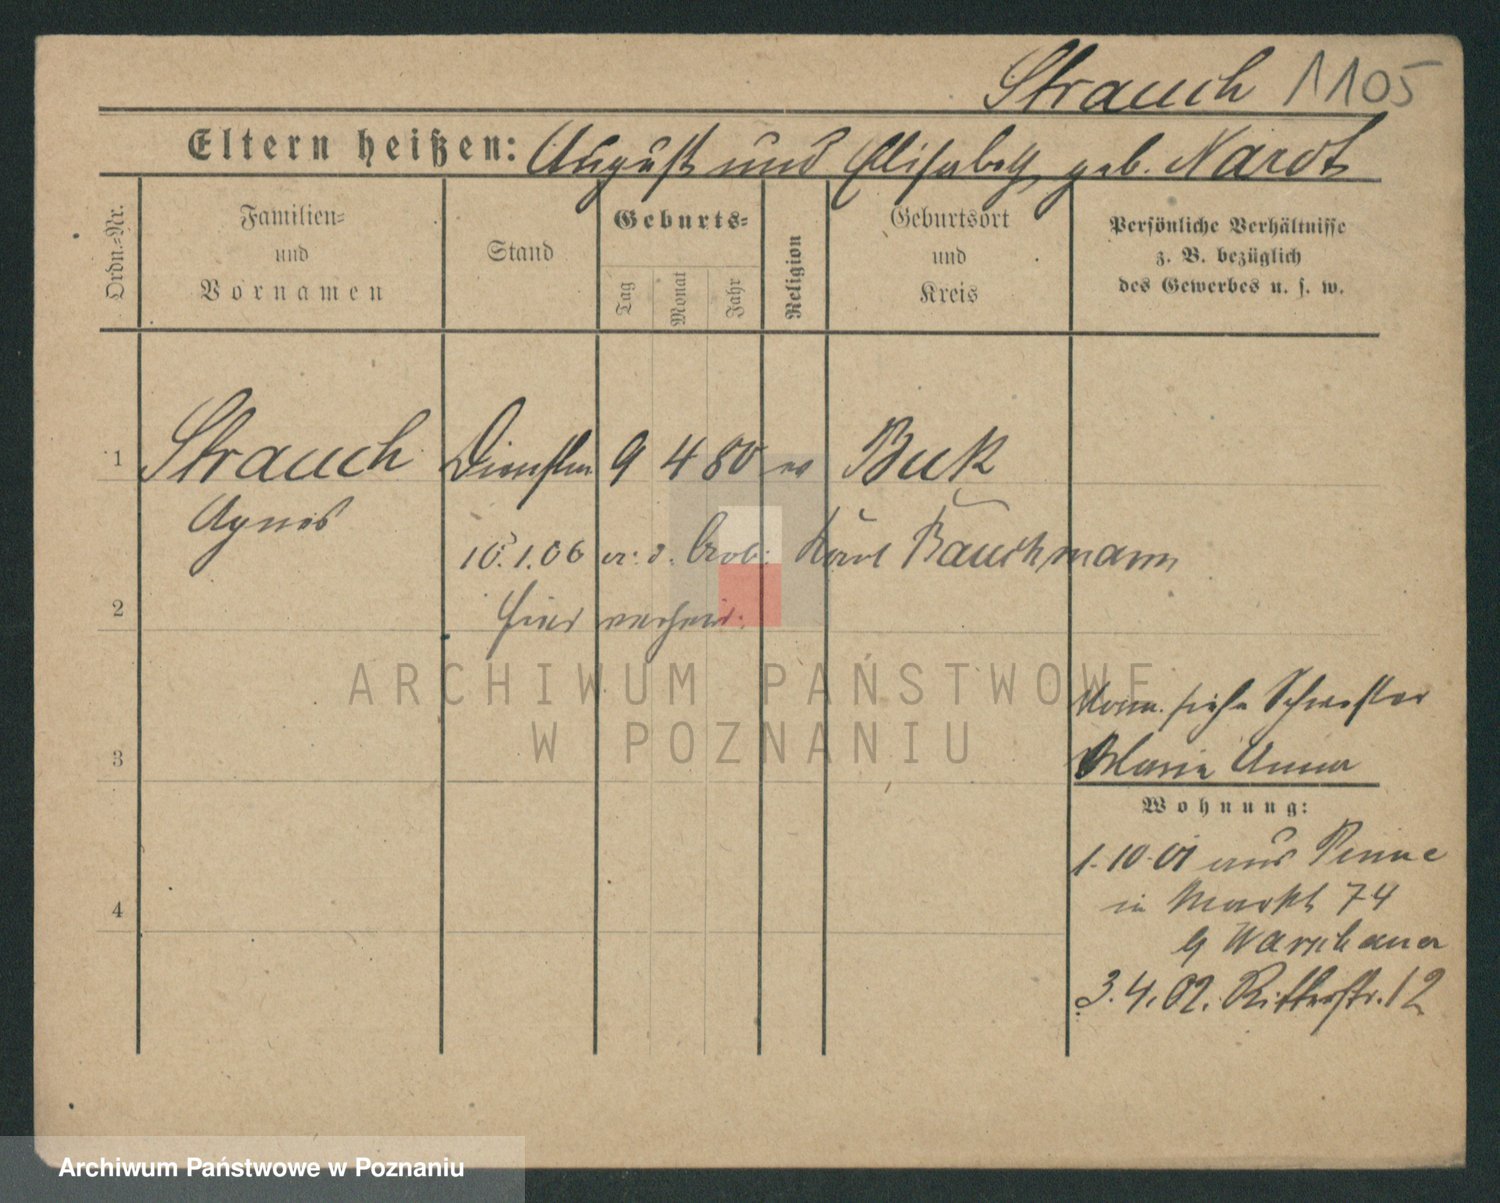 Strauch 1105
Eltern heißen: August und Elisabeth geb. Nardt
Ordn.-Nr.
Familien-
und
Vornamen
Stand
Geburts-
Tag
Monat
Jahr
Religion
Geburtsort
und
Kreis
Persönliche Verhältnisse
z. B. bezüglich
des Gewerbes u. s. w.
1 Strauch 9 4 80 ev Buk
Agnes
10.1.06 Karl Bauchmann
2 hier verheir.
ARCHIWUM PAŃSTWOWE
W POZNANIU
siehe Schwester
3 Maria Anna
Wohnung:
1.10.01 aus Pinne
in Markt 74
4
b/ Warschauer
3.4.02. Ritterstr. 12
Archiwum Państwowe w Poznaniu